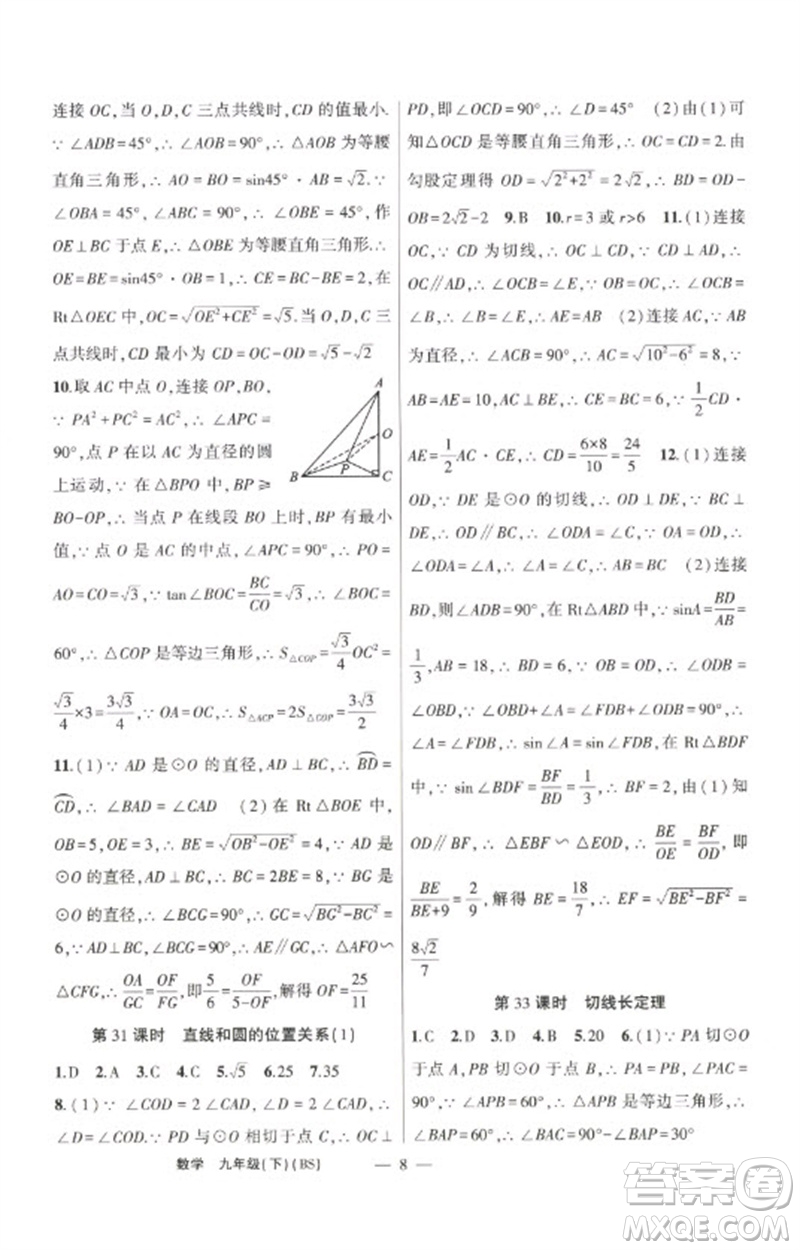 连接 OC,当 O,D,C 三点共线时,CD 的值最小.
∵ ∠ADB=45°,∴ ∠AOB=90°,∴ △AOB 为等腰
直角三角形,∴ AO=BO=sin45°·AB=√2.∵
∠OBA=45°,∠ABC=90°,∴ ∠OBE=45°,作
OE⊥BC 于点 E,∴ △OBE 为等腰直角三角形.∴
OE=BE=sin45°·OB=1,∴ CE=BC-BE=2,在
Rt△OEC 中,OC=√(OE²+CE²)=√5.当 O,D,C 三
点共线时,CD 最小为 CD=OC-OD=√5-√2
10.取 AC 中点 O,连接 OP,BO,
∵ PA²+PC²=AC²,∴ ∠APC=
90°,点 P 在以 AC 为直径的圆
上运动,∵ 在△BPO 中,BP≥
BO-OP,∴ 当点 P 在线段 BO 上时,BP 有最小
值,∵ 点 O 是 AC 的中点,∠APC=90°,∴ PO=
AO=CO=√3,∵ tan∠BOC=BC/CO=√3,∴ ∠BOC=
60°,∴ △COP 是等边三角形,∴ S△COP=√3/4 OC²=
√3/4×3=3√3/4,∵ OA=OC,∴ S△ACP=2S△COP=3√3/2
11.(1)∵ AD 是⊙O 的直径,AD⊥BC,∴ B͡D=
C͡D,∴ ∠BAD=∠CAD (2)在 Rt△BOE 中,
OB=5,OE=3,∴ BE=√(OB²-OE²)=4,∵ AD 是
⊙O 的直径,AD⊥BC,∴ BC=2BE=8,∵ BG 是
⊙O 的直径,∴ ∠BCG=90°,∴ GC=√(BG²-BC²)=
6,∵ AD⊥BC,∠BCG=90°,∴ AE∥GC,∴ △AFO∽
△CFG,∴ OA/GC=OF/FG,即5/6=OF/(5-OF),解得 OF=25/11
第 31 课时 直线和圆的位置关系(1)
1.D 2.A 3.C 4.C 5.√5 6.25 7.35
8.(1)∵ ∠COD=2∠CAD,∠D=2∠CAD,∴
∠D=∠COD.∵ PD 与⊙O 相切于点 C,∴ OC⊥
PD,即∠OCD=90°,∴ ∠D=45° (2)由(1)可
知△OCD 是等腰直角三角形,∴ OC=CD=2.由
勾股定理得 OD=√(2²+2²)=2√2,∴ BD=OD-
OB=2√2-2 9.B 10.r=3 或 r>6 11.(1)连接
OC,∵ CD 为切线,∴ OC⊥CD,∵ AD⊥CD,∴
OC∥AD,∴ ∠OCB=∠E,∵ OB=OC,∴ ∠OCB=
∠B,∴ ∠B=∠E,∴ AE=AB (2)连接 AC,∵ AB
为直径,∴ ∠ACB=90°,∴ AC=√(10²-6²)=8,∵
AB=AE=10,AC⊥BE,∴ CE=BC=6,∵ 1/2 CD·
AE=1/2 AC·CE,∴ CD=(6×8)/10=24/5 12.(1)连接
OD,∵ DE 是⊙O 的切线,∴ OD⊥DE,∵ BC⊥
DE,∴ OD∥BC,∴ ∠ODA=∠C,∵ OA=OD,∴
∠ODA=∠A,∴ ∠A=∠C,∴ AB=BC (2)连接
BD,则∠ADB=90°,在 Rt△ABD 中,∵ sinA=BD/AB=
1/3,AB=18,∴ BD=6,∵ OB=OD,∴ ∠ODB=
∠OBD,∵ ∠OBD+∠A=∠FDB+∠ODB=90°,∴
∠A=∠FDB,∴ sin∠A=sin∠FDB,在 Rt△BDF
中,∵ sin∠BDF=BF/BD=1/3,∴ BF=2,由(1)知
OD∥BF,∴ △EBF∽△EOD,∴ BE/OE=BF/OD,即
BE/(BE+9)=2/9,解得 BE=18/7,∴ EF=√(BE²-BF²)=
8√2/7
第 33 课时 切线长定理
1.C 2.D 3.D 4.B 5.20 6.(1)∵ PA 切⊙O
于点 A,PB 切⊙O 于点 B,∴ PA=PB,∠PAC=
90°,∵ ∠APB=60°,∴ △APB 是等边三角形,∴
∠BAP=60°,∴ ∠BAC=90°-∠BAP=30°
A
O
P
B
C
数学 九年级(下)(BS) — 8 —
答案圈
MXQE.COM